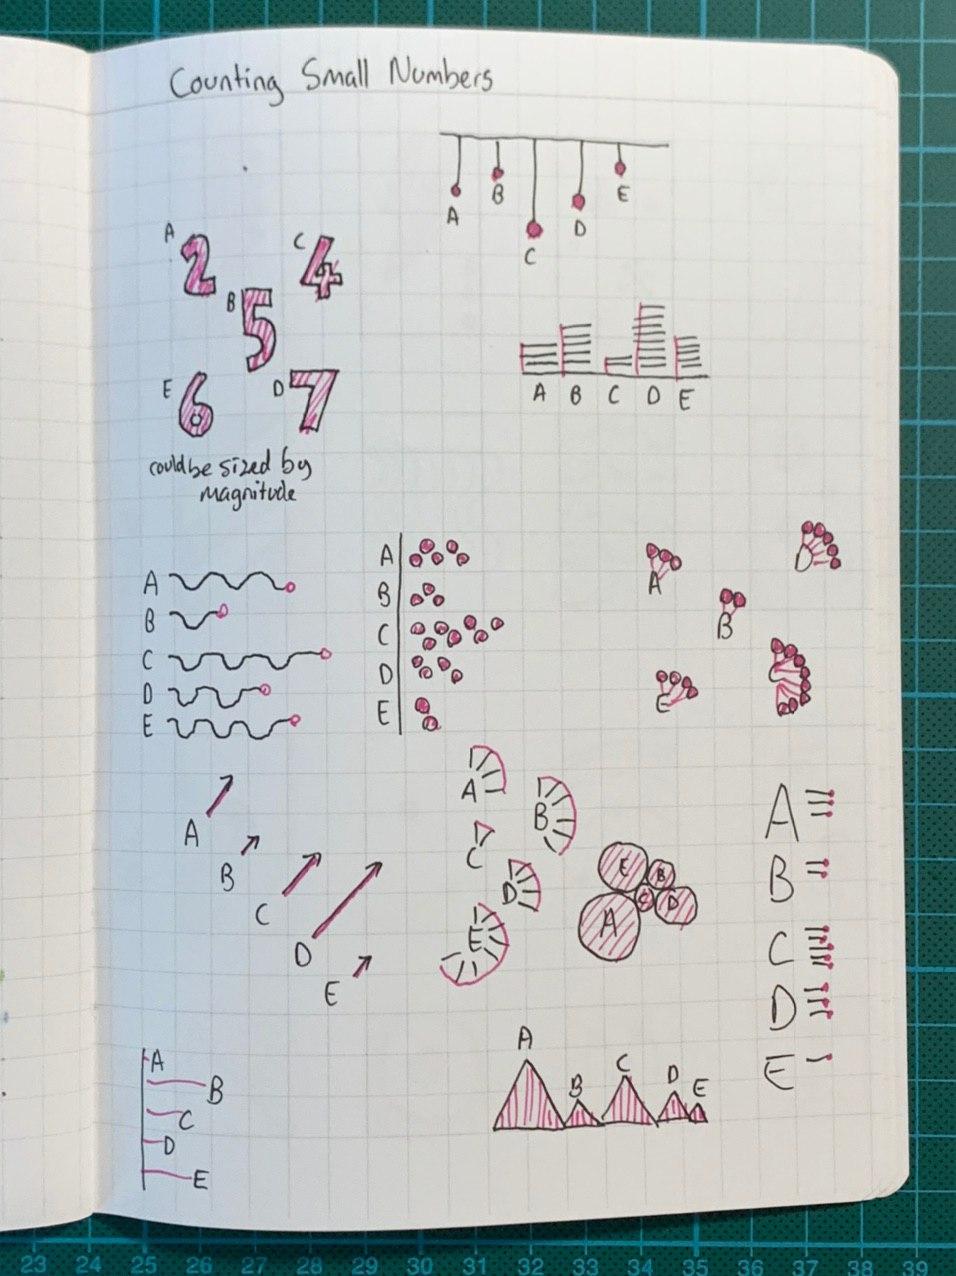 Counting Small Numbers
A
B
C
D
E
A 2
C 4
B 5
E 6
D 7
could be sized by
magnitude
A B C D E
A
B
C
D
E
A
B
C
D
E
A
B
C
D
E
A
B
C
D
E
A
B
C
D
E
E
B
A
C
D
A
B
C
D
E
A
B
C
D
E
A
B
C
D
E
23 24 25 26 27 28 29 30 31 32 33 34 35 36 37 38 39